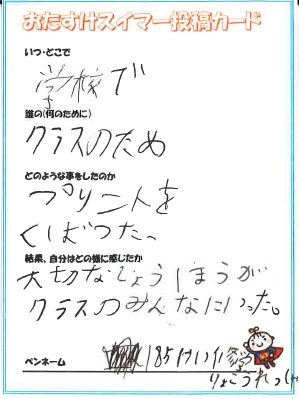 おたすけスイマー投稿カード
いつ・どこで
学校で
誰の(何のために)
クラスのため
どのような事をしたのか
プリントを
くばった。
結果、自分はどの様に感じたか
大切なじょうほうが
クラスのみんなにいった。
ペンネーム
185けい
りょこうれっしゃ